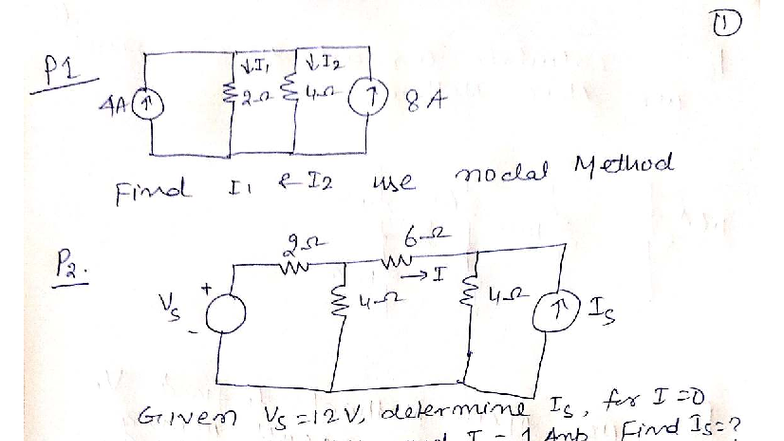 ①
P1
↓I₁ ↓I₂
4A 2Ω 4Ω 8A
Find I₁ & I₂ use nodal Method
P2.
2Ω 6Ω
→ I
+ Vs - 4Ω 4Ω Is
Given Vs = 12V, determine Is, for I = 0
I = 1 Amp Find Is = ?